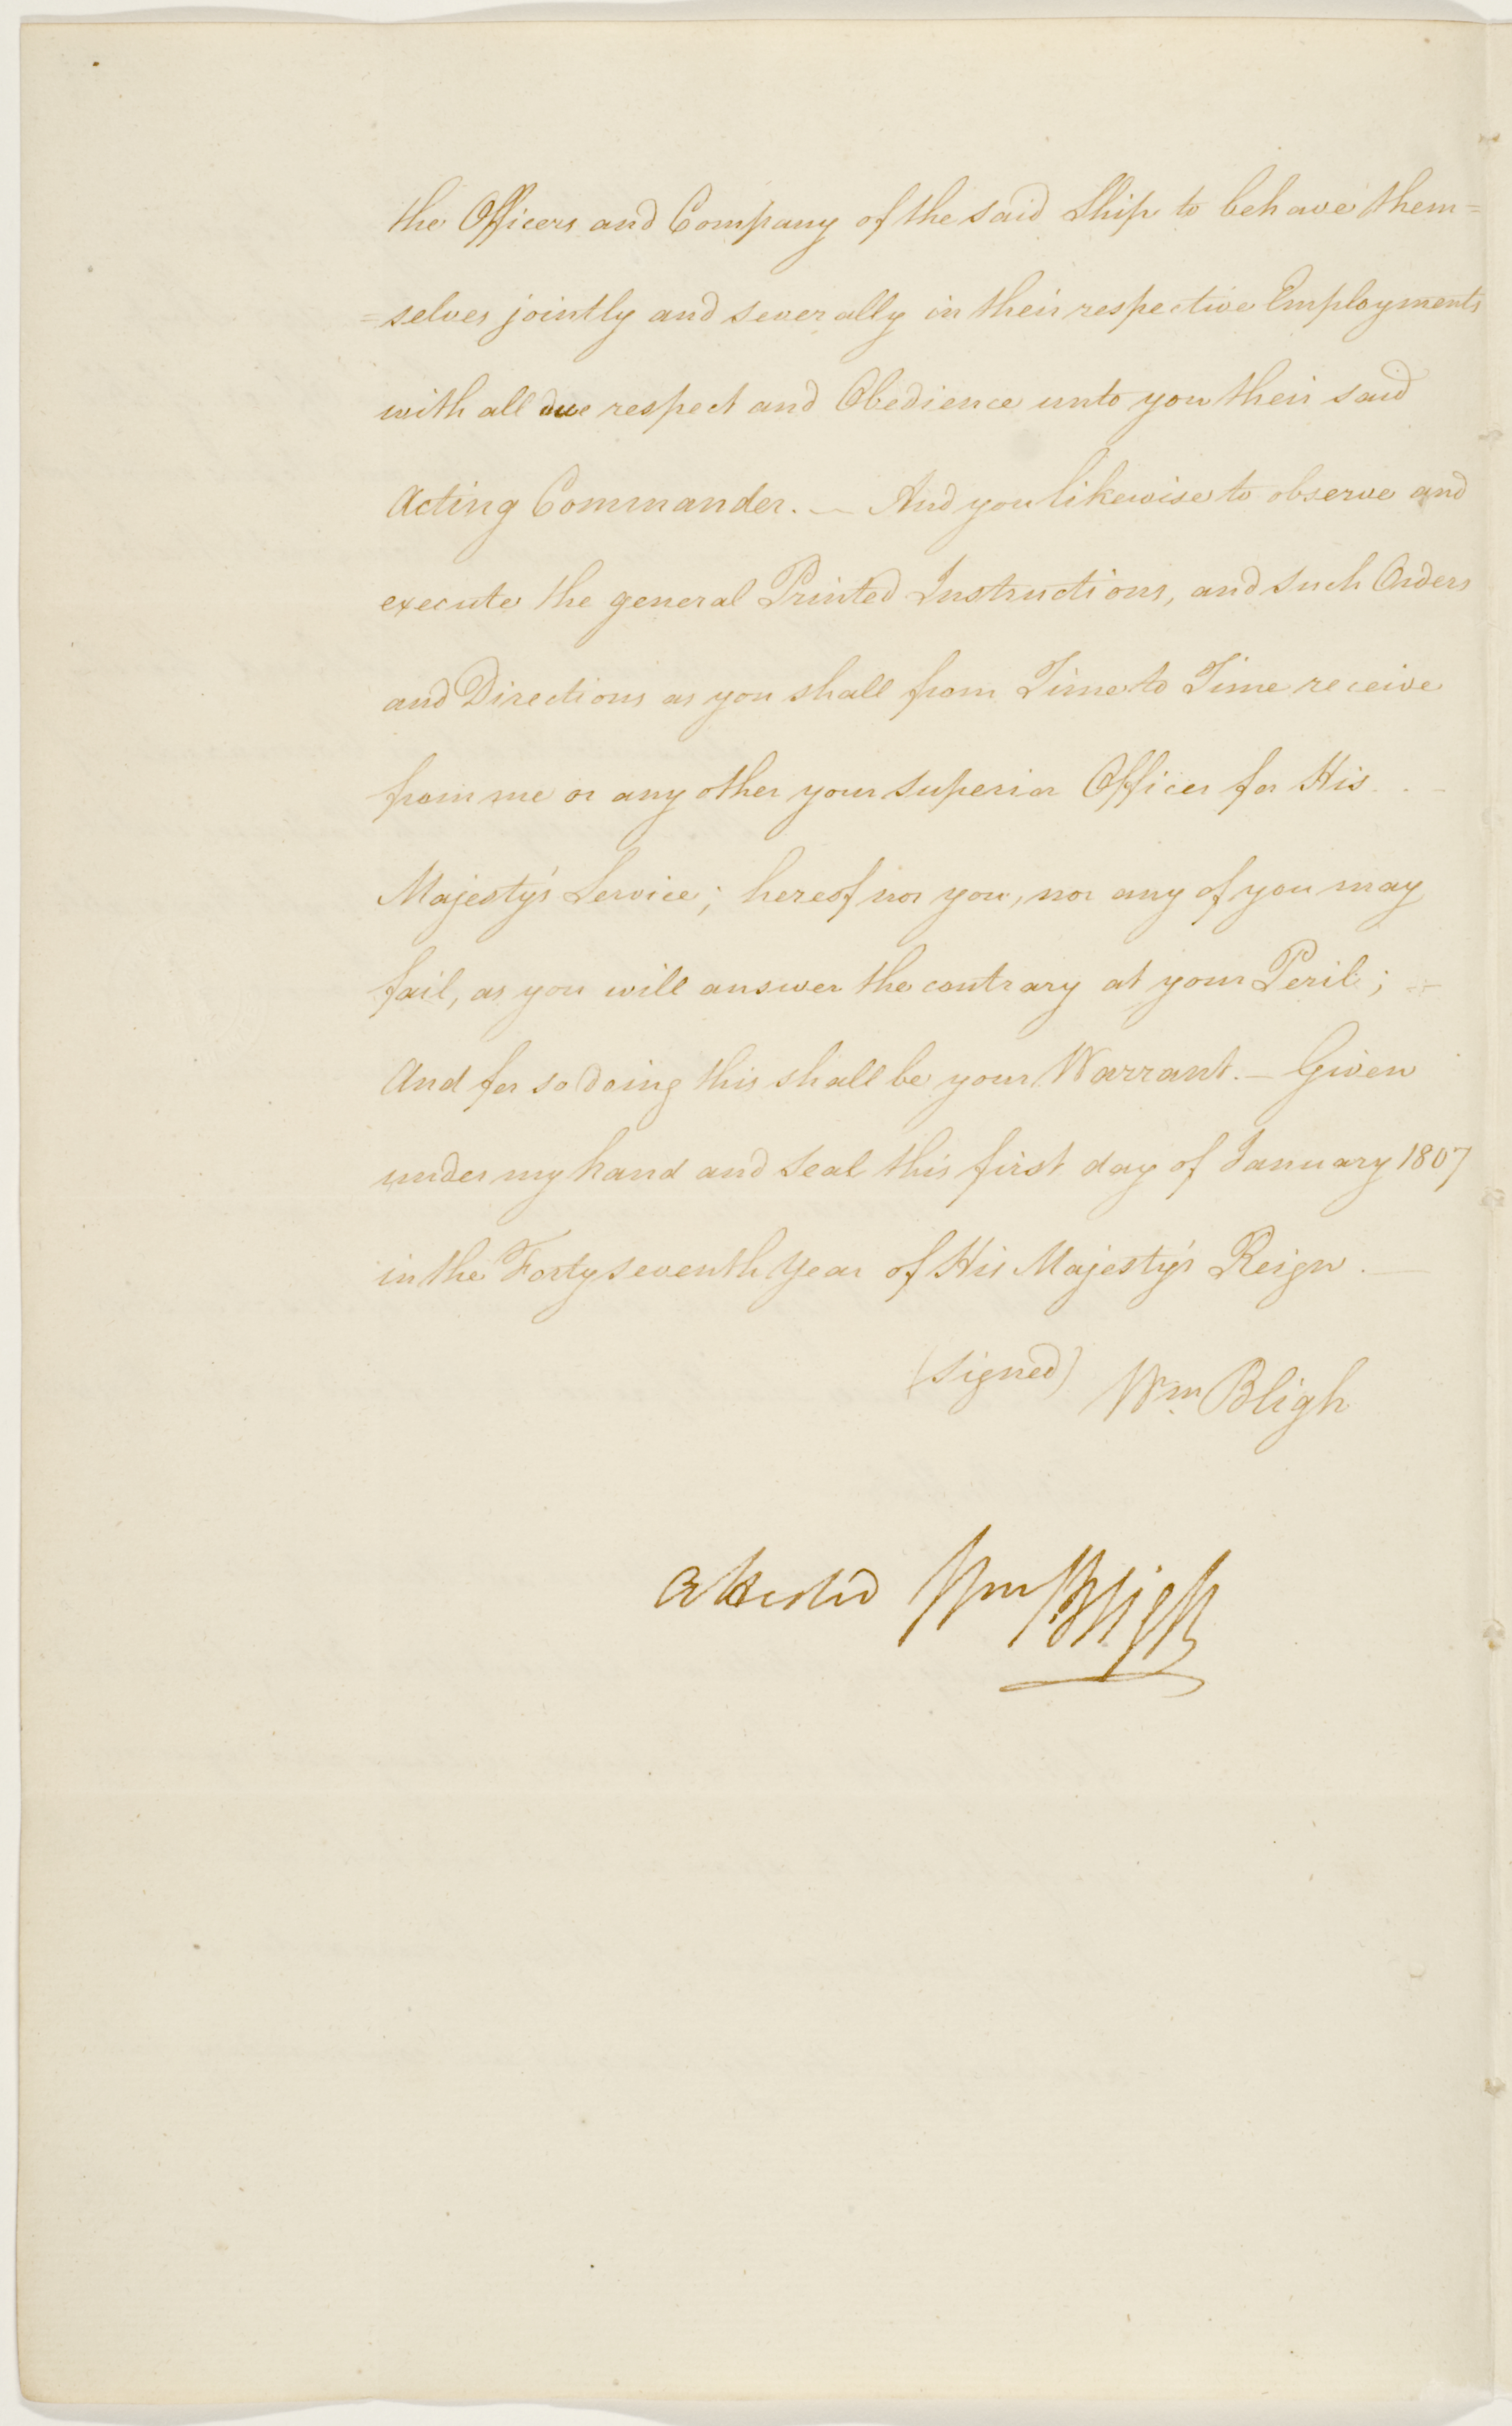 the Officers and Company of the said Ship to behave them=
=selves jointly and severally in their respective Employments
with all due respect and Obedience unto you their said
Acting Commander. — And you likewise to observe and
execute the general Printed Instructions, and such Orders
and Directions as you shall from Time to Time receive
from me or any other your superior Officer for His
Majesty's Service; hereof nor you, nor any of you may
fail, as you will answer the contrary at your Peril;
And for so doing this shall be your Warrant. — Given
under my hand and seal this first day of January 1807
in the Forty seventh Year of His Majesty's Reign. —
(signed) Wm. Bligh
attested Wm Bligh